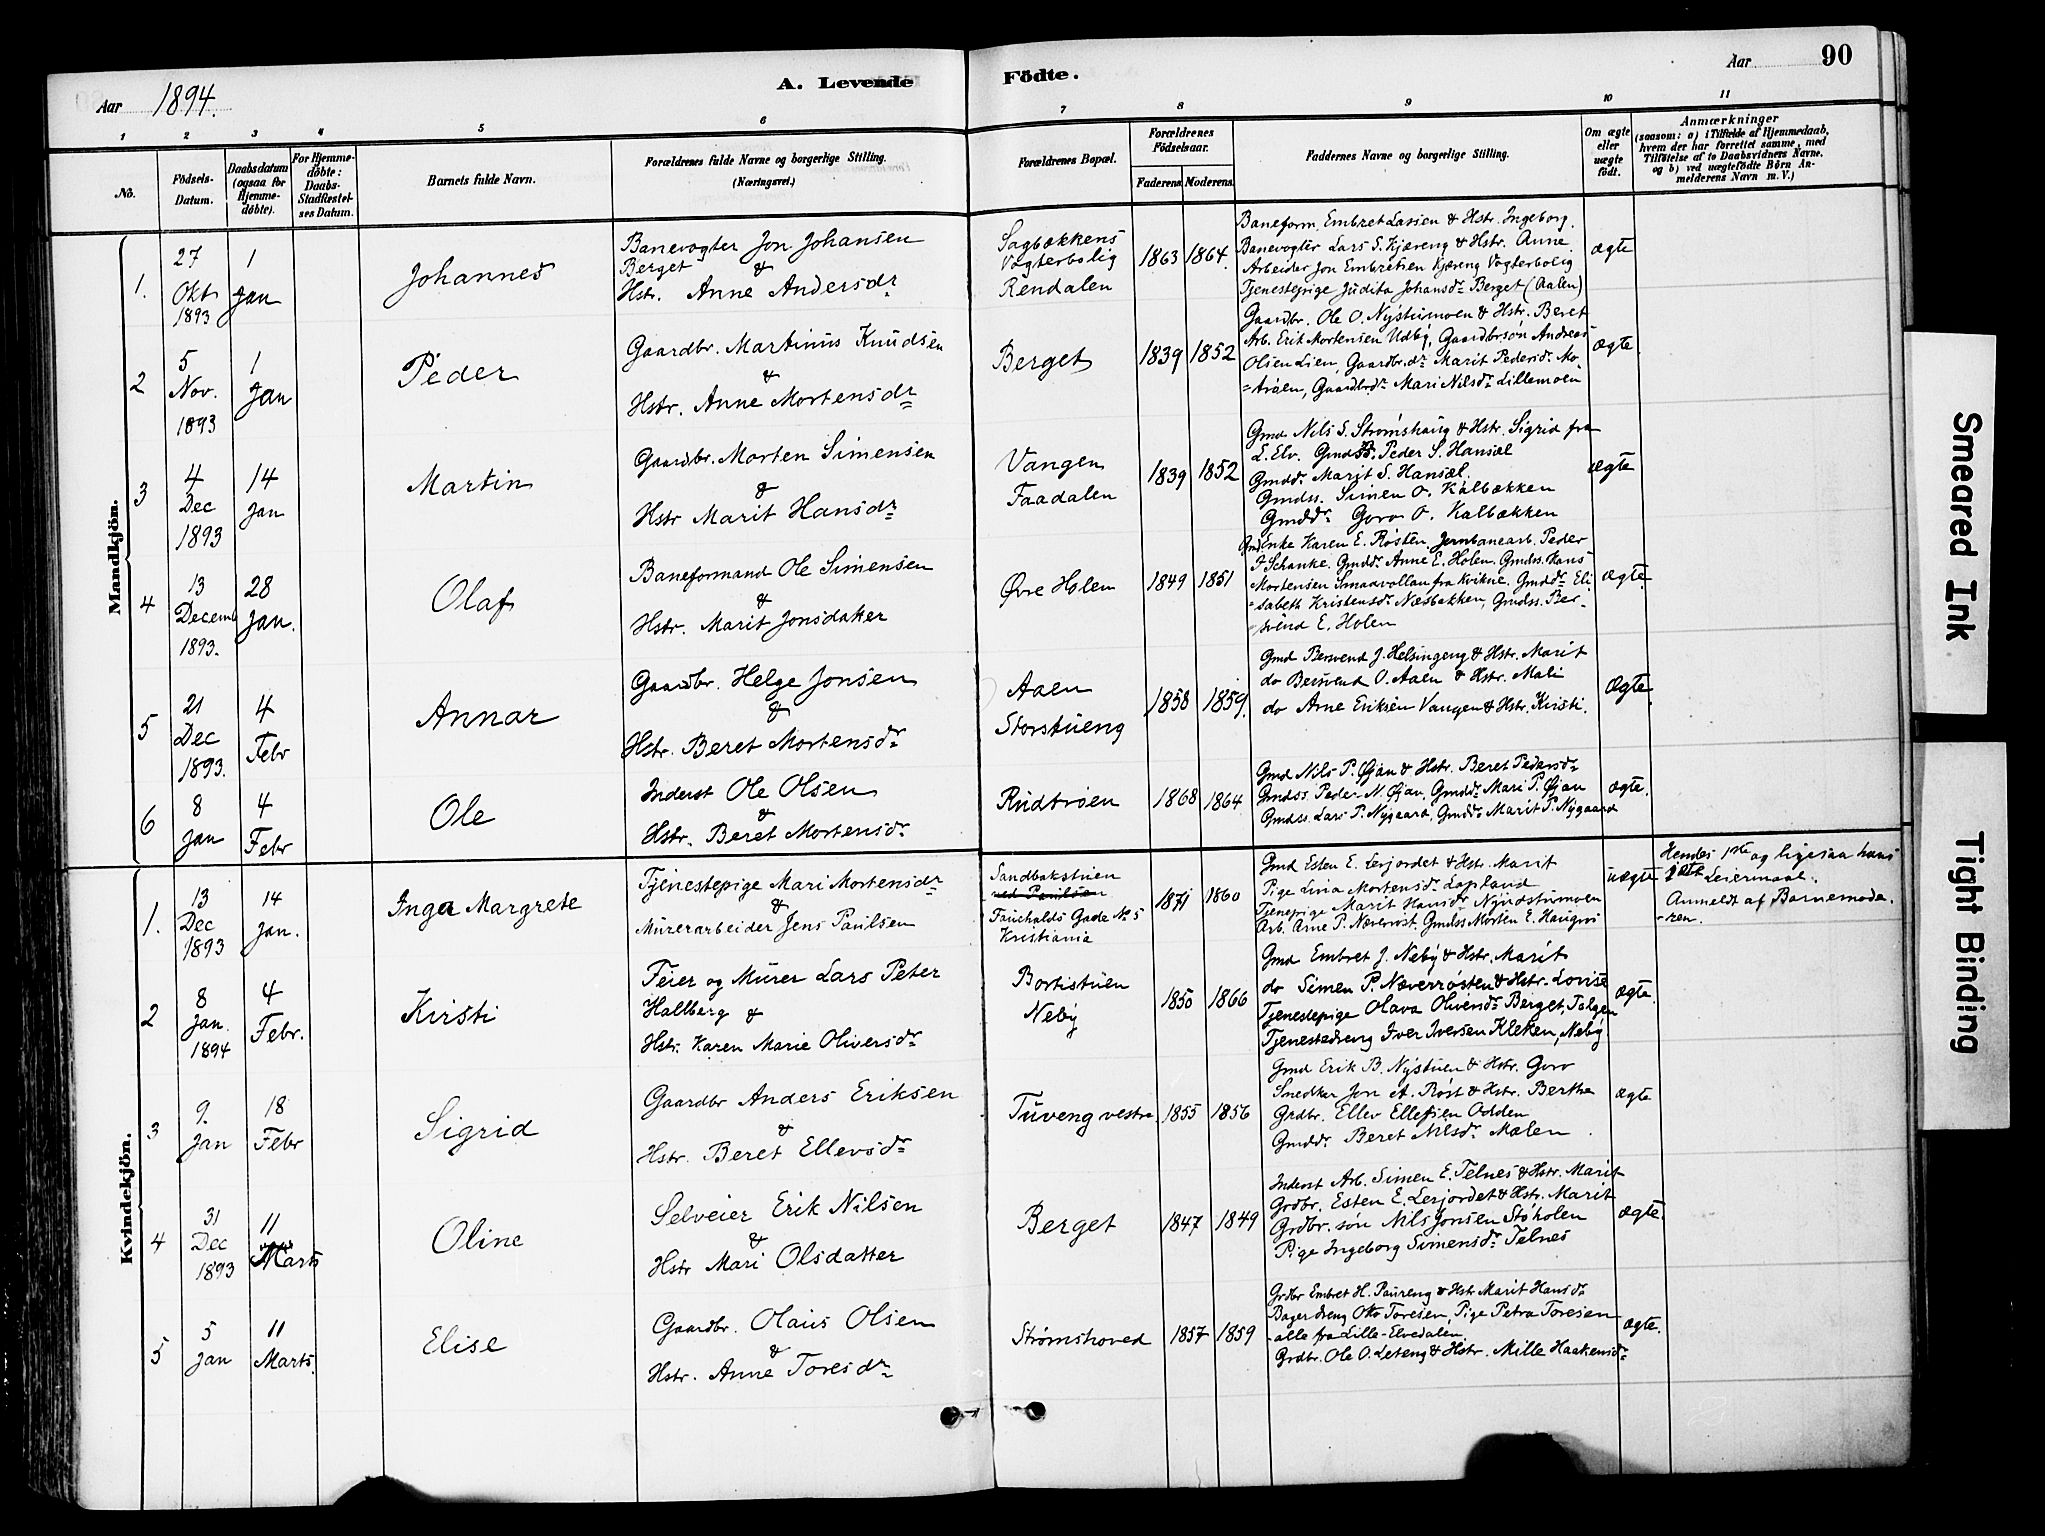 90
Aar 1894.
A. Levende Födte.
Aar
1 2 3 4 5 6 7 8 9 10 11
No.
Födsels-Datum.
Daabsdatum (ogsaa for Hjemme-döbte).
For Hjemme-döbte: Daabs-Stadfæstel-ses Datum.
Barnets fulde Navn.
Forældrenes fulde Navne og borgerlige Stilling.
(Næringsvei.)
Forældrenes Bopæl.
Forældrenes Födselsaar.
Faderens. Moderens.
Faddernes Navne og borgerlige Stilling.
Om ægte eller uægte födt.
Anmærkninger
(saasom: a) i Tilfælde af Hjemmedaab,
hvem der har forrettet samme, med
Tilföielse af to Daabsvidners Navne,
og b) ved uægtefödte Börn An-
melderens Navn m. V.)
Mandkjön.
1. 27 Okt 1893
1 Jan
Johannes
Banevogter Jon Johansen
Berget &
Hstr. Anne Andersdr
Sagbækkens
Vogterbolig
Rendalen
1863 1864.
Baneform. Embret Larsen & Hstr. Ingeborg.
Banevogter Lars S. Kjæreng & Hstr. Anne
Arbeider Jon Embretsen Kjæreng Vogterbolig
Tjenestepige Judita Johansdr Berget (Aalen)
ægte
2 5 Nov. 1893
1 Jan
Peder
Gaardbr. Martinus Knudsen
&
Hstr. Anne Mortensdr
Berget
1839 1852
Gaardbr. Ole O. Nystumoen & Hstr. Beret
Arb. Erit Mortensen Udby, Gaardbrsøn Andreas
Olsen Lien, Gaardbr.dr Marit Pedersdr Mo-
=trøen, Gaardbrdr Mari Nilsdr Lillemoen
ægte
3 4 Dec 1893
14 Jan
Martin
Gaardbr. Morten Simensen
&
Hstr Marit Hansdr
Vangen
Faadalen
1839 1852
Gmd Nils S. Strømshaug & Hstr. Sigrid fra
L. Elv. Gmdss. Peder S. Hansæl
Gmddr Marit S. Hansæl.
Gmdss. Simen O. Kalbækken
Gmddr Goro O. Kalbækken
ægte
4 13 Decemb 1893.
28 Jan.
Olaf
Baneformand Ole Simensen
&
Hstr. Marit Jonsdatter
Øvre Holen
1849 1851
Gmd Enke Karen E. Røsten, Jernbanearb. Peder
Schanke. Gmddr Anne E. Holen. Gmdss. Hans
Mortensen Smaavollan fra Kvikne. Gmddr Eli-
=sabeth Kristensdr Næsbakken, Gmdss. Ber-
svend E. Holen
ægte
5 21 Dec 1893.
4 Febr
Annar
Gaardbr. Helge Jonsen
&
Hstr. Beret Mortensdr
Aaen
Storstueng
1858 1859.
Gmd Bersvend J. Helsingeng & Hstr. Marit
do Bersvend O. Aaen & Hstr. Mali
do Arne Eriksen Vangen & Hstr. Kirsti.
ægte
6 8 Jan
4 Febr
Ole
Inderst Ole Olsen
&
Hstr. Beret Mortensdr
Rudtrøen
1868 1864
Gmd Nils P. Øian & Hstr. Beret Pedersdr
Gmdss. Peder N. Øian, Gmddr Mari P. Øian
Gmdss. Lars P. Nygaard, Gmddr Marit P. Nygaard
ægte.
Kvindekjön.
1. 13 Dec 1893
14 Jan.
Inga Margrete
Tjenestepige Mari Mortensdr
&
Murerarbeider Jens Paulsen
Sandbakstuen
Fauchalds Gade No 5
Kristiania
1871 1860
Gmd Esten E. Lerjordet & Hstr. Marit
Pige Lina Mortensdr Lapland
Tjenepige Marit Hansdr Nyudstumoen
Arb. Arne P. Næverøst. Gmdss Morten E. Haugros
uægte
Hendes 1ste og ligesaa hans
Leiermaal.
Anmeldt af Barnemode-
-ren.
2 8 Jan. 1894
4 Febr.
Kirsti
Feier og Murer Lars Peter
Hallberg &
Hstr. Karen Marie Oliversdr
Bortistuen
Neby
1850 1866
Gmd Embret J. Neby & Hstr. Marit
do Simen P. Næverrøsten & Hstr. Lovise
Tjenestepige Olava Olivensdr Berget, Tolgen
Tjenestedreng Iver Iversen Kleken, Neby
ægte
3 9. Jan
18 Febr
Sigrid
Gaardbr Anders Eriksen
&
Hstr. Beret Ellevsdr
Tuveng vestre.
1855 1856
Gmd Erik B. Nystuen & Hstr. Goro
Smedkar Jon A. Røst & Hstr. Berthe
Grdbr. Ellev Ellefsen Odden
Gmddr. Beret Nilsdr Mælen.
ægte
4 31 Dec 1893
11 Marts
Oline
Selveier Erik Nilsen
&
Hstr Mari Olsdatter
Berget
1847 1849
Inderst Arb. Simen E. Telnes & Hstr. Marit
Grdbr. Esten E. Lerjordet & Hstr. Marit
Grdbr. søn Nils Jonsen Støholen
Pige Ingeborg Simensdr Telnes
ægte.
5 5 Jan
11 Marts.
Elise
Gaardbr. Olaus Olsen
&
Hstr. Anne Toresdr
Strømshoved
1857 1859
Grdbr Embret H. Paureng & Hstr Marit Hansdr
Bagerdreng Otto Toresen, Pige Petra Toresen
-alle fra Lille-Elvedalen.
Grdbr. Ole O. Leteng & Hstr. Mille Haakensdr
ægte.
Smeared Ink
Tight Binding